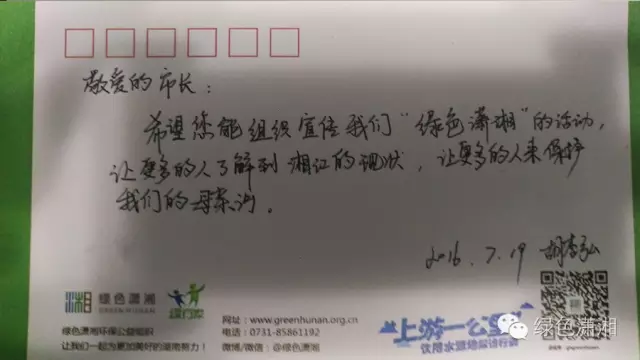 敬爱的市长：
希望您能组织宣传我们“绿色潇湘”的活动，
让更多的人了解到湘江的现状，让更多的人来保护
我们的母亲河。
2016.7.19
绿色潇湘
GREEN HUNAN
绿行家
绿色潇湘环保公益组织
让我们一起为更加美好的湖南努力！
网址：www.greenhunan.org.cn
电话：0731-85861192
微博/微信：@绿色潇湘
上游一公里
饮用水源地探访行动
绿色潇湘